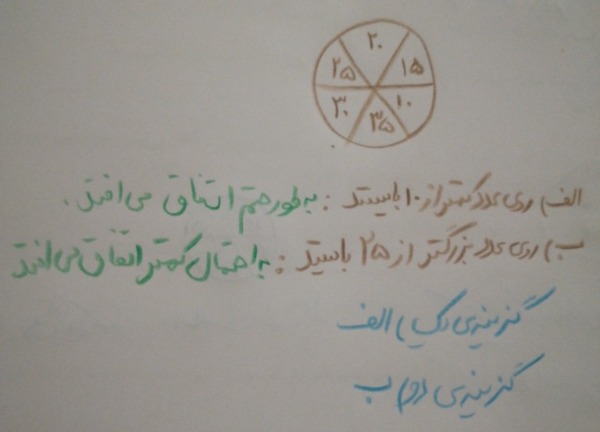 ۲۰
۲۵ ۱۵
۳۰ ۱۰
۳۵
الف) روی عدد کمتر از ۱۰ بایستد : به طور حتم اتفاق می افتد.
ب) روی عدد بزرگتر از ۲۵ بایستد : به احتمال کمتر اتفاق می افتد
گزینه‌ی یک) الف
گزینه‌ی دو) ب